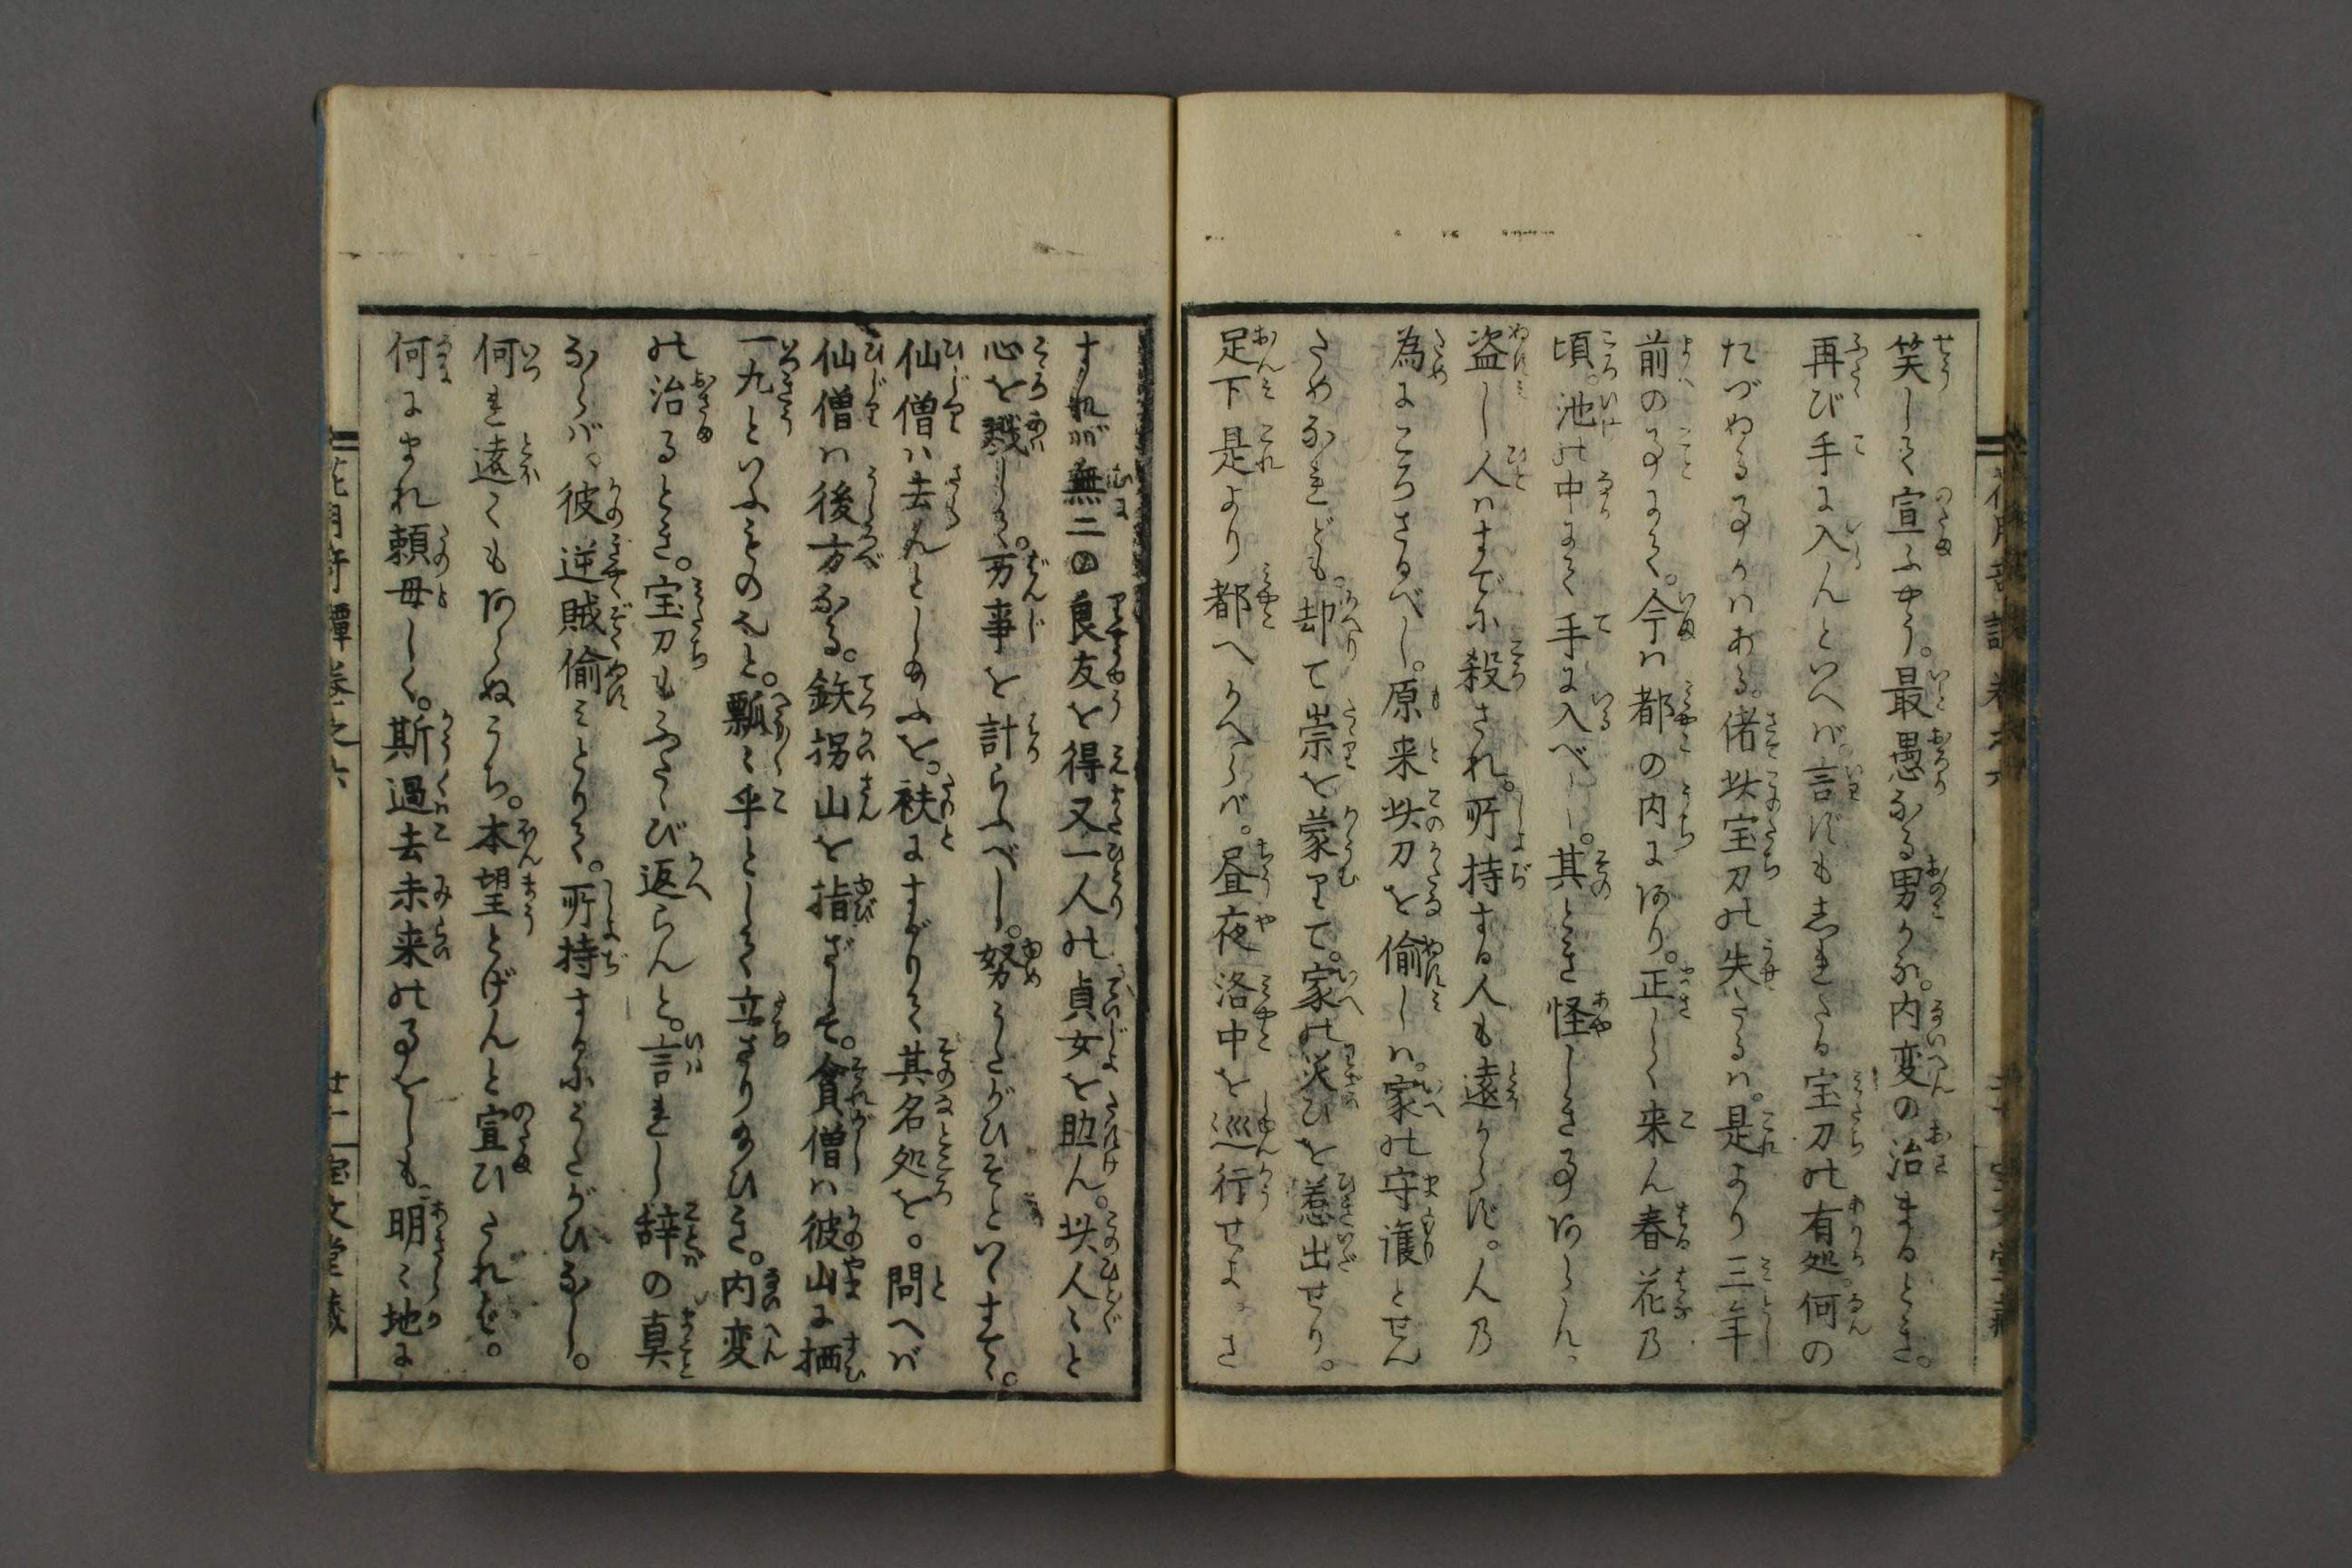 笑して宣ふやう。最愚なる男かな。内変の治まるとき。
再び手に入んといへば。言ずもしれたる宝刀の有処。何の
たづぬる事かはある。偖此宝刀の失たるは。是より三年
前の事にて。今は都の内にあり。正しく来ん春花の
頃。池の中にて手に入べし。其とき怪しき事あらん。
盗し人はすでに殺され。所持する人も遠からず。人の
為にころさるべし。原来此刀を偸しは。家の守護とせん
ためなれども。却て祟を蒙りて。家の災ひを惹出せり。
足下是より都へかへらば。昼夜洛中を巡行せよ。さ
すれば無二の良友を得又一人の貞女を助ん。此人〻と
心を戮して。万事を計らふべし。努うたがひそといひすてゝ。
仙僧は去んとしのふを。袂にすがりて其名処を。問へば
仙僧は後方なる。鉄拐山を指ざして。貧僧は彼山に栖
一九といふものぞと。瓢〻乎として立さり給ひき。内変
の治るとき。宝刀もふたゝび返らんと。言れし辞の真
ならば。彼逆賊偸みとりて。所持すかにうたがひなし。
何れ遠くもあらぬうち。本望とげんと宣ひたれど。
何にまれ頼母しく。斯過去未来の事をしも。明〻地に
花月奇譚巻之六
廿一
宝文堂蔵